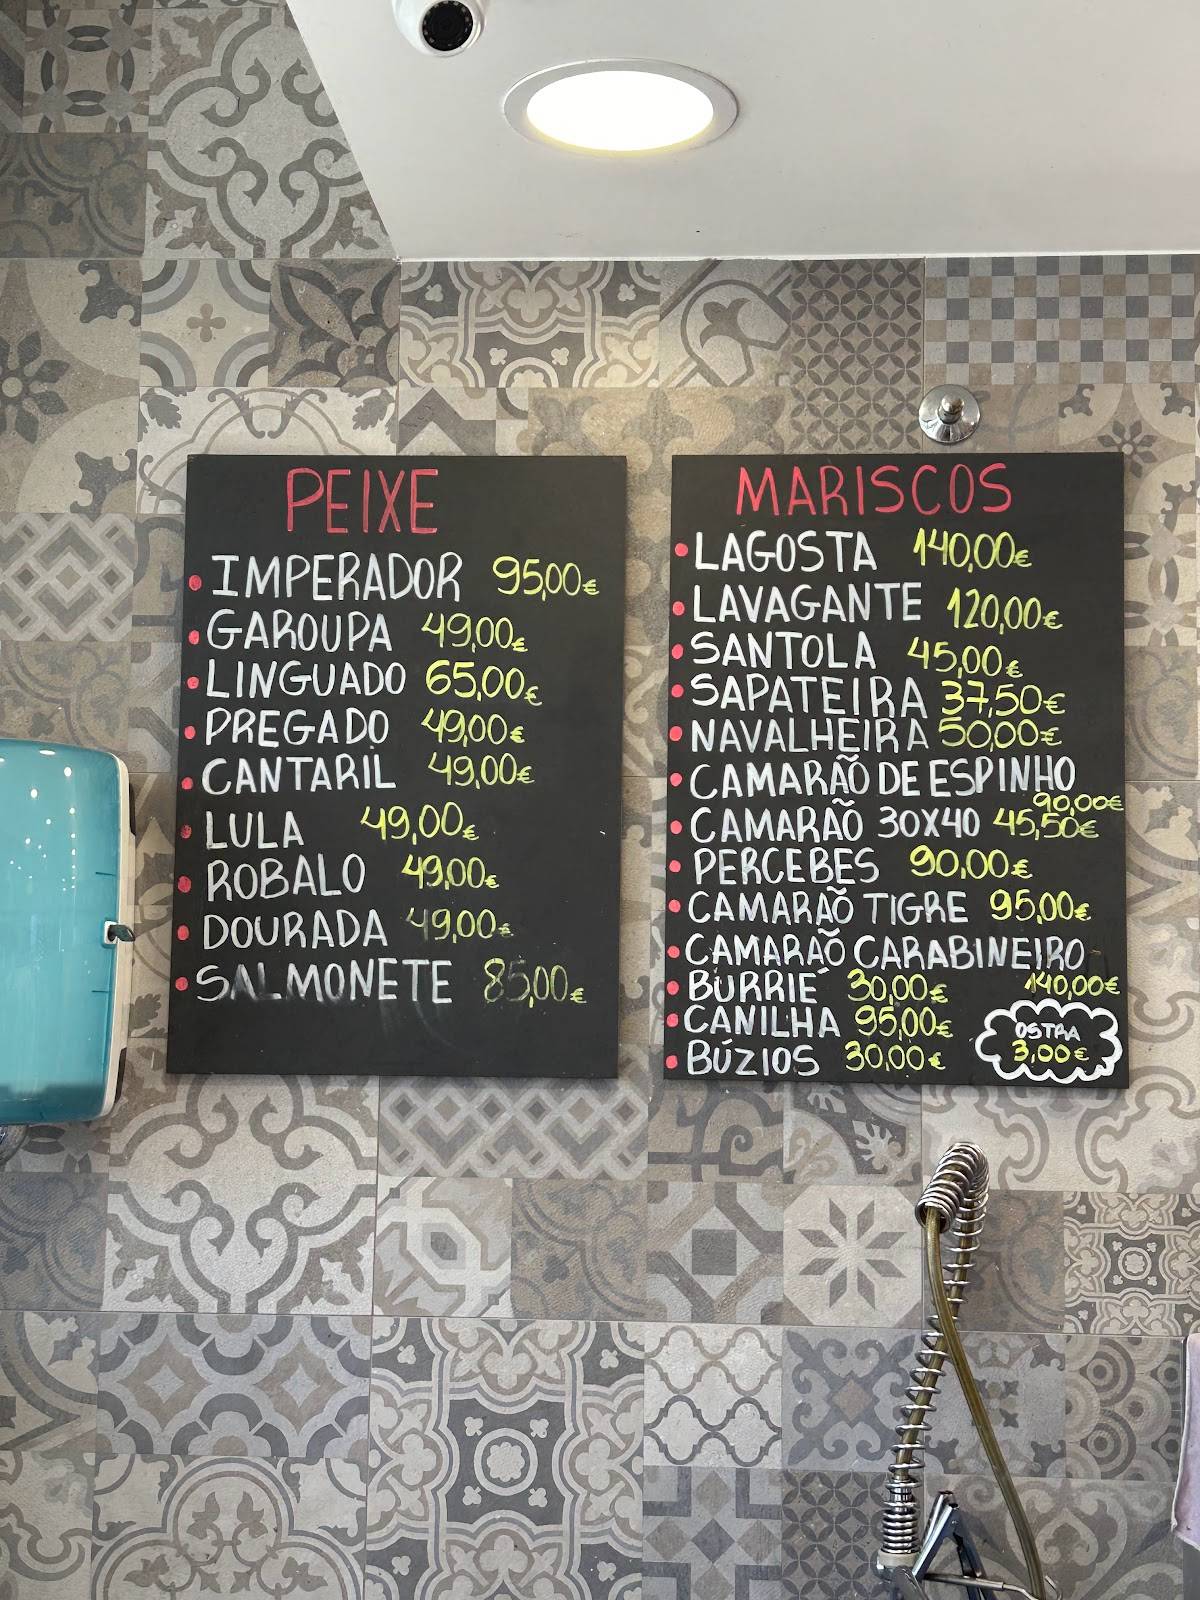 PEIXE
• IMPERADOR 95,00€
• GAROUPA 49,00€
• LINGUADO 65,00€
• PREGADO 49,00€
• CANTARIL 49,00€
• LULA 49,00€
• ROBALO 49,00€
• DOURADA 49,00€
• SALMONETE 85,00€
MARISCOS
• LAGOSTA 140,00€
• LAVAGANTE 120,00€
• SANTOLA 45,00€
• SAPATEIRA 37,50€
• NAVALHEIRA 50,00€
• CAMARÃO DE ESPINHO
90,00€
• CAMARÃO 30X40 45,50€
• PERCEBES 90,00€
• CAMARÃO TIGRE 95,00€
• CAMARAÕ CARABINEIRO
140,00€
• BURRIÉ 30,00€
• CANILHA 95,00€
• BÚZIOS 30,00€
OSTRA
3,00€